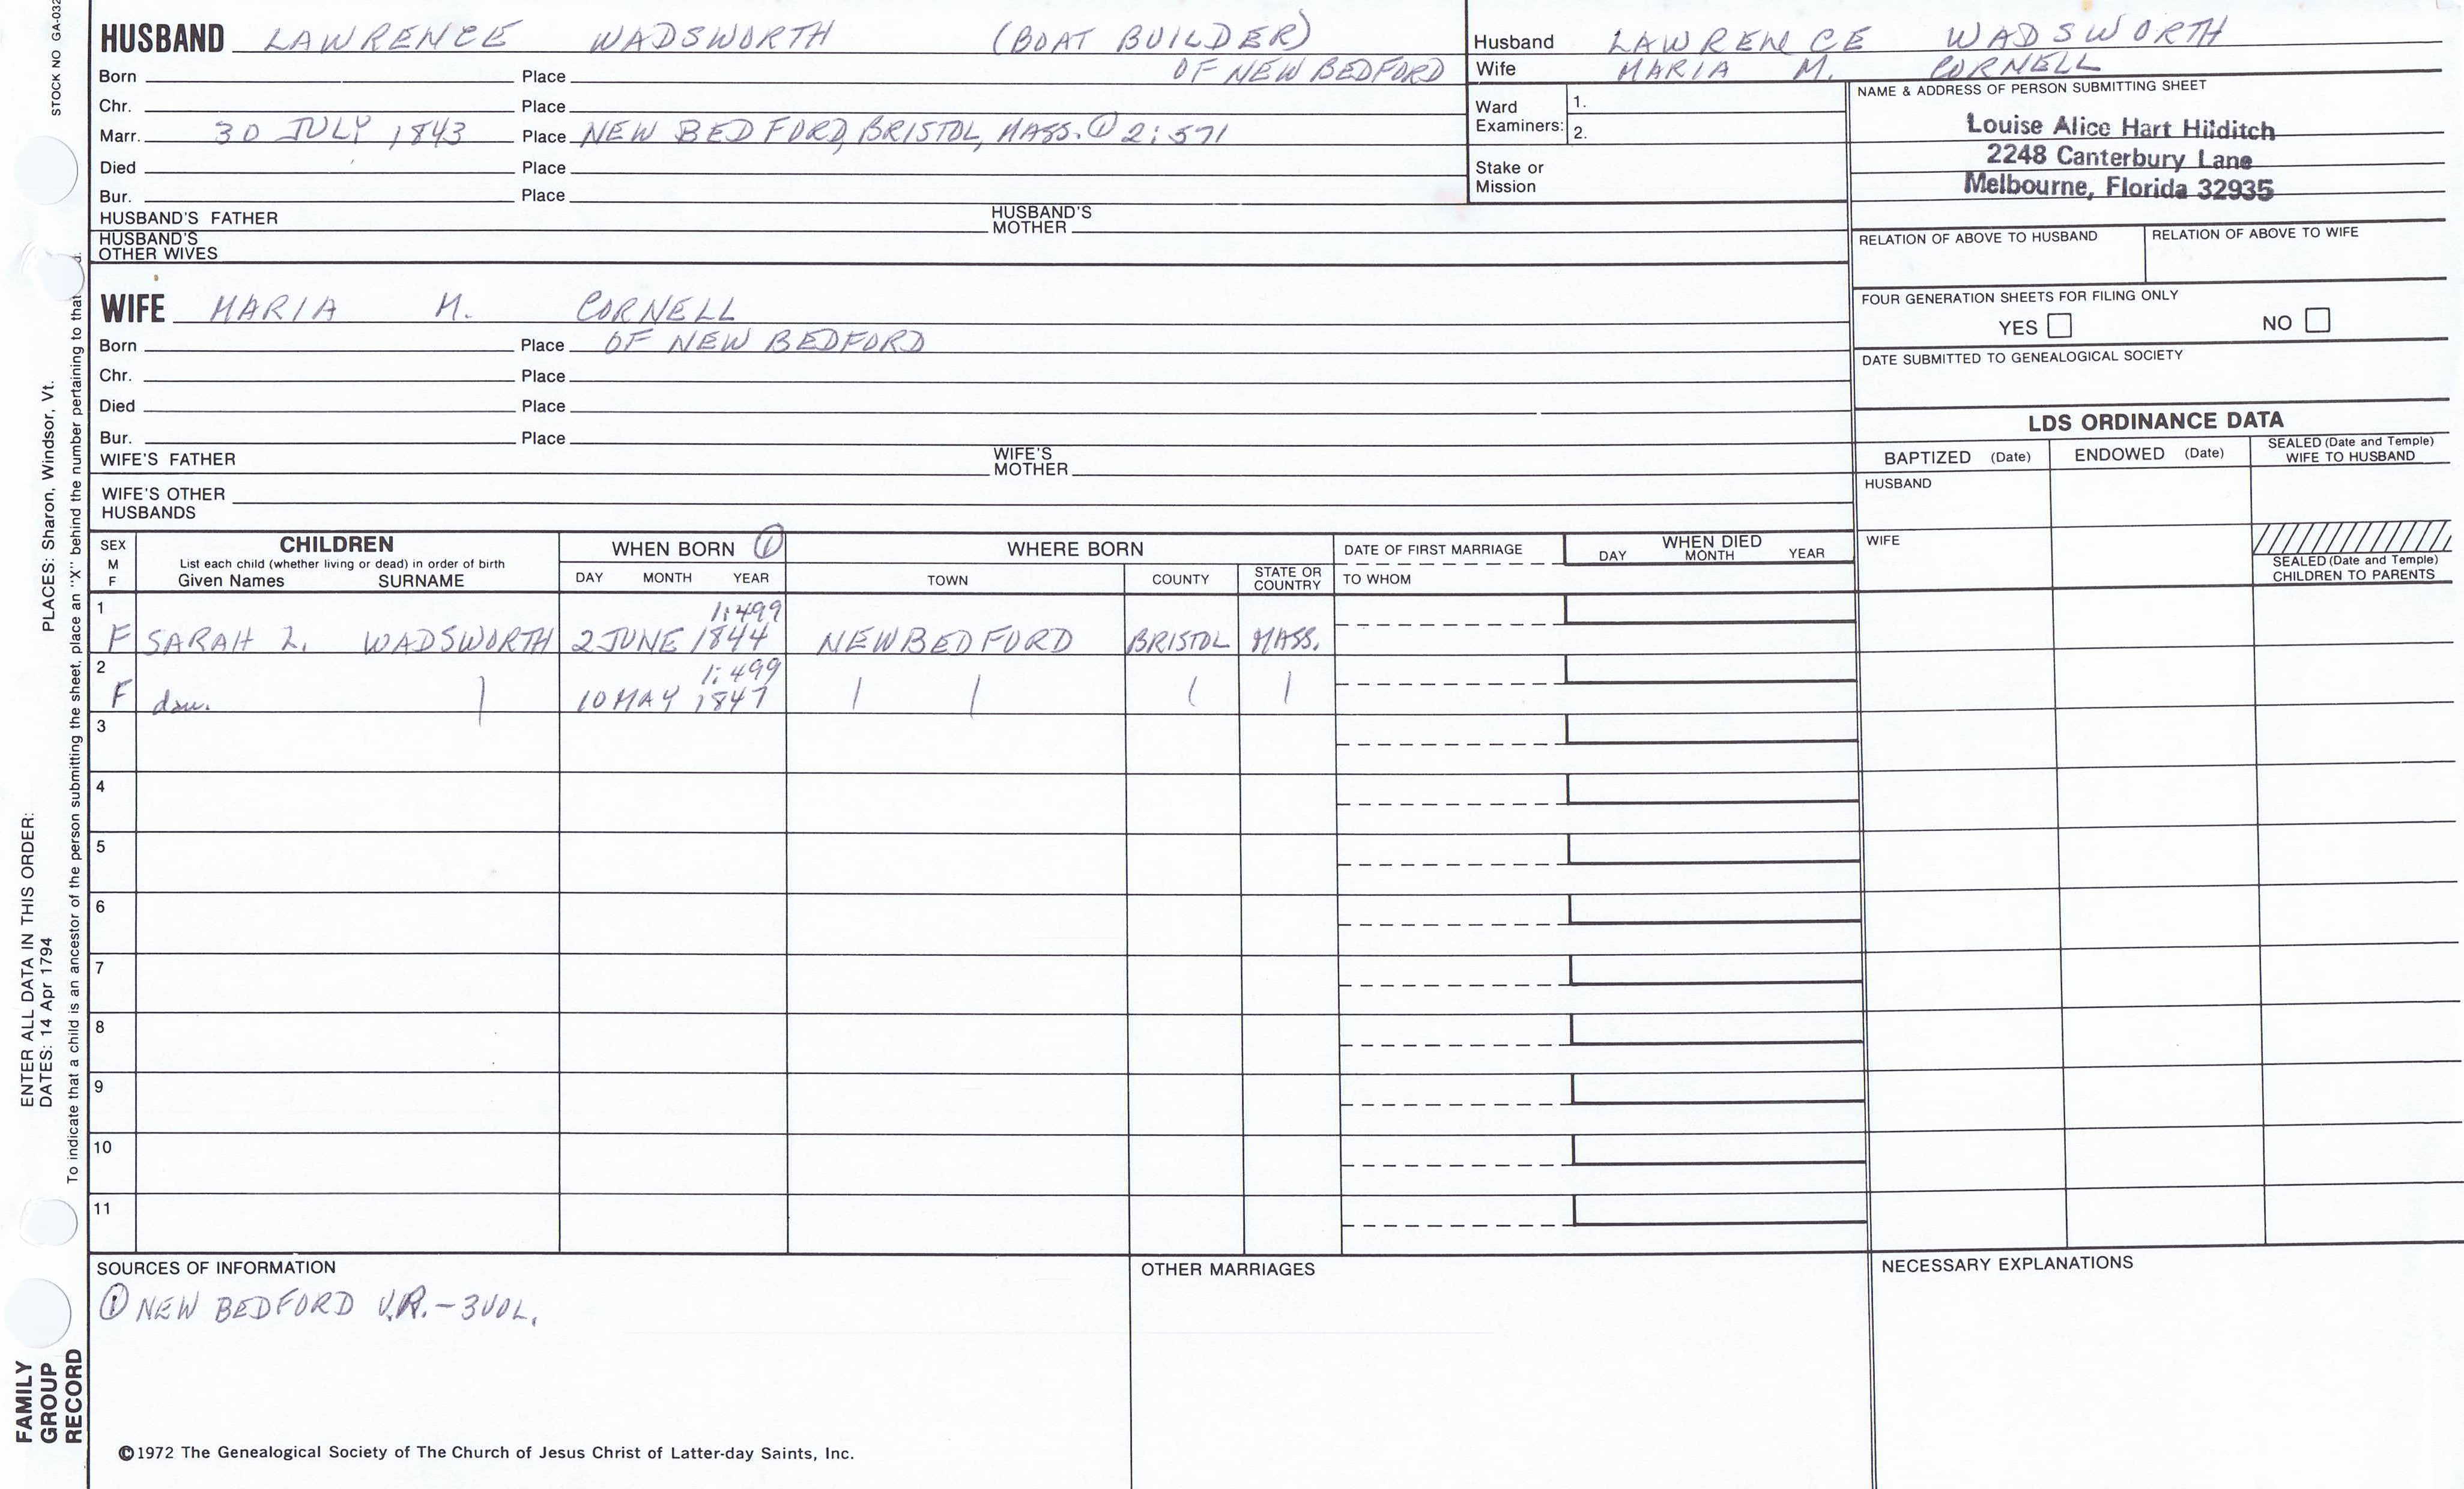 STOCK NO GA-032
HUSBAND LAWRENCE WADSWORTH (BOAT BUILDER)
Born Place OF NEW BEDFORD
Chr. Place
Marr. 30 JULY 1843 Place NEW BEDFORD, BRISTOL, MASS. ① 2:571
Died Place
Bur. Place
HUSBAND'S FATHER HUSBAND'S MOTHER
HUSBAND'S OTHER WIVES
WIFE MARIA M. CORNELL
Born Place OF NEW BEDFORD
Chr. Place
Died Place
Bur. Place
WIFE'S FATHER WIFE'S MOTHER
WIFE'S OTHER HUSBANDS
Husband LAWRENCE WADSWORTH
Wife MARIA M. CORNELL
Ward Examiners: 1.
2.
Stake or Mission
NAME & ADDRESS OF PERSON SUBMITTING SHEET
Louise Alice Hart Hilditch
2248 Canterbury Lane
Melbourne, Florida 32935
RELATION OF ABOVE TO HUSBAND RELATION OF ABOVE TO WIFE
FOUR GENERATION SHEETS FOR FILING ONLY
YES NO
DATE SUBMITTED TO GENEALOGICAL SOCIETY
LDS ORDINANCE DATA
BAPTIZED (Date) ENDOWED (Date) SEALED (Date and Temple) WIFE TO HUSBAND
HUSBAND
WIFE
SEALED (Date and Temple) CHILDREN TO PARENTS
SEX M F CHILDREN WHEN BORN ① WHERE BORN DATE OF FIRST MARRIAGE WHEN DIED
List each child (whether living or dead) in order of birth
Given Names SURNAME DAY MONTH YEAR TOWN COUNTY STATE OR COUNTRY TO WHOM DAY MONTH YEAR
1 1:499
F SARAH L. WADSWORTH 2 JUNE 1844 NEW BEDFORD BRISTOL MASS.
2 1:499
F dau. 10 MAY 1847
3
4
5
6
7
8
9
10
11
SOURCES OF INFORMATION OTHER MARRIAGES NECESSARY EXPLANATIONS
① NEW BEDFORD V.R.-3VOL.
©1972 The Genealogical Society of The Church of Jesus Christ of Latter-day Saints, Inc.
FAMILY
GROUP
RECORD
ENTER ALL DATA IN THIS ORDER:
DATES: 14 Apr 1794 PLACES: Sharon, Windsor, Vt.
To indicate that a child is an ancestor of the person submitting the sheet, place an "X" behind the number pertaining to that